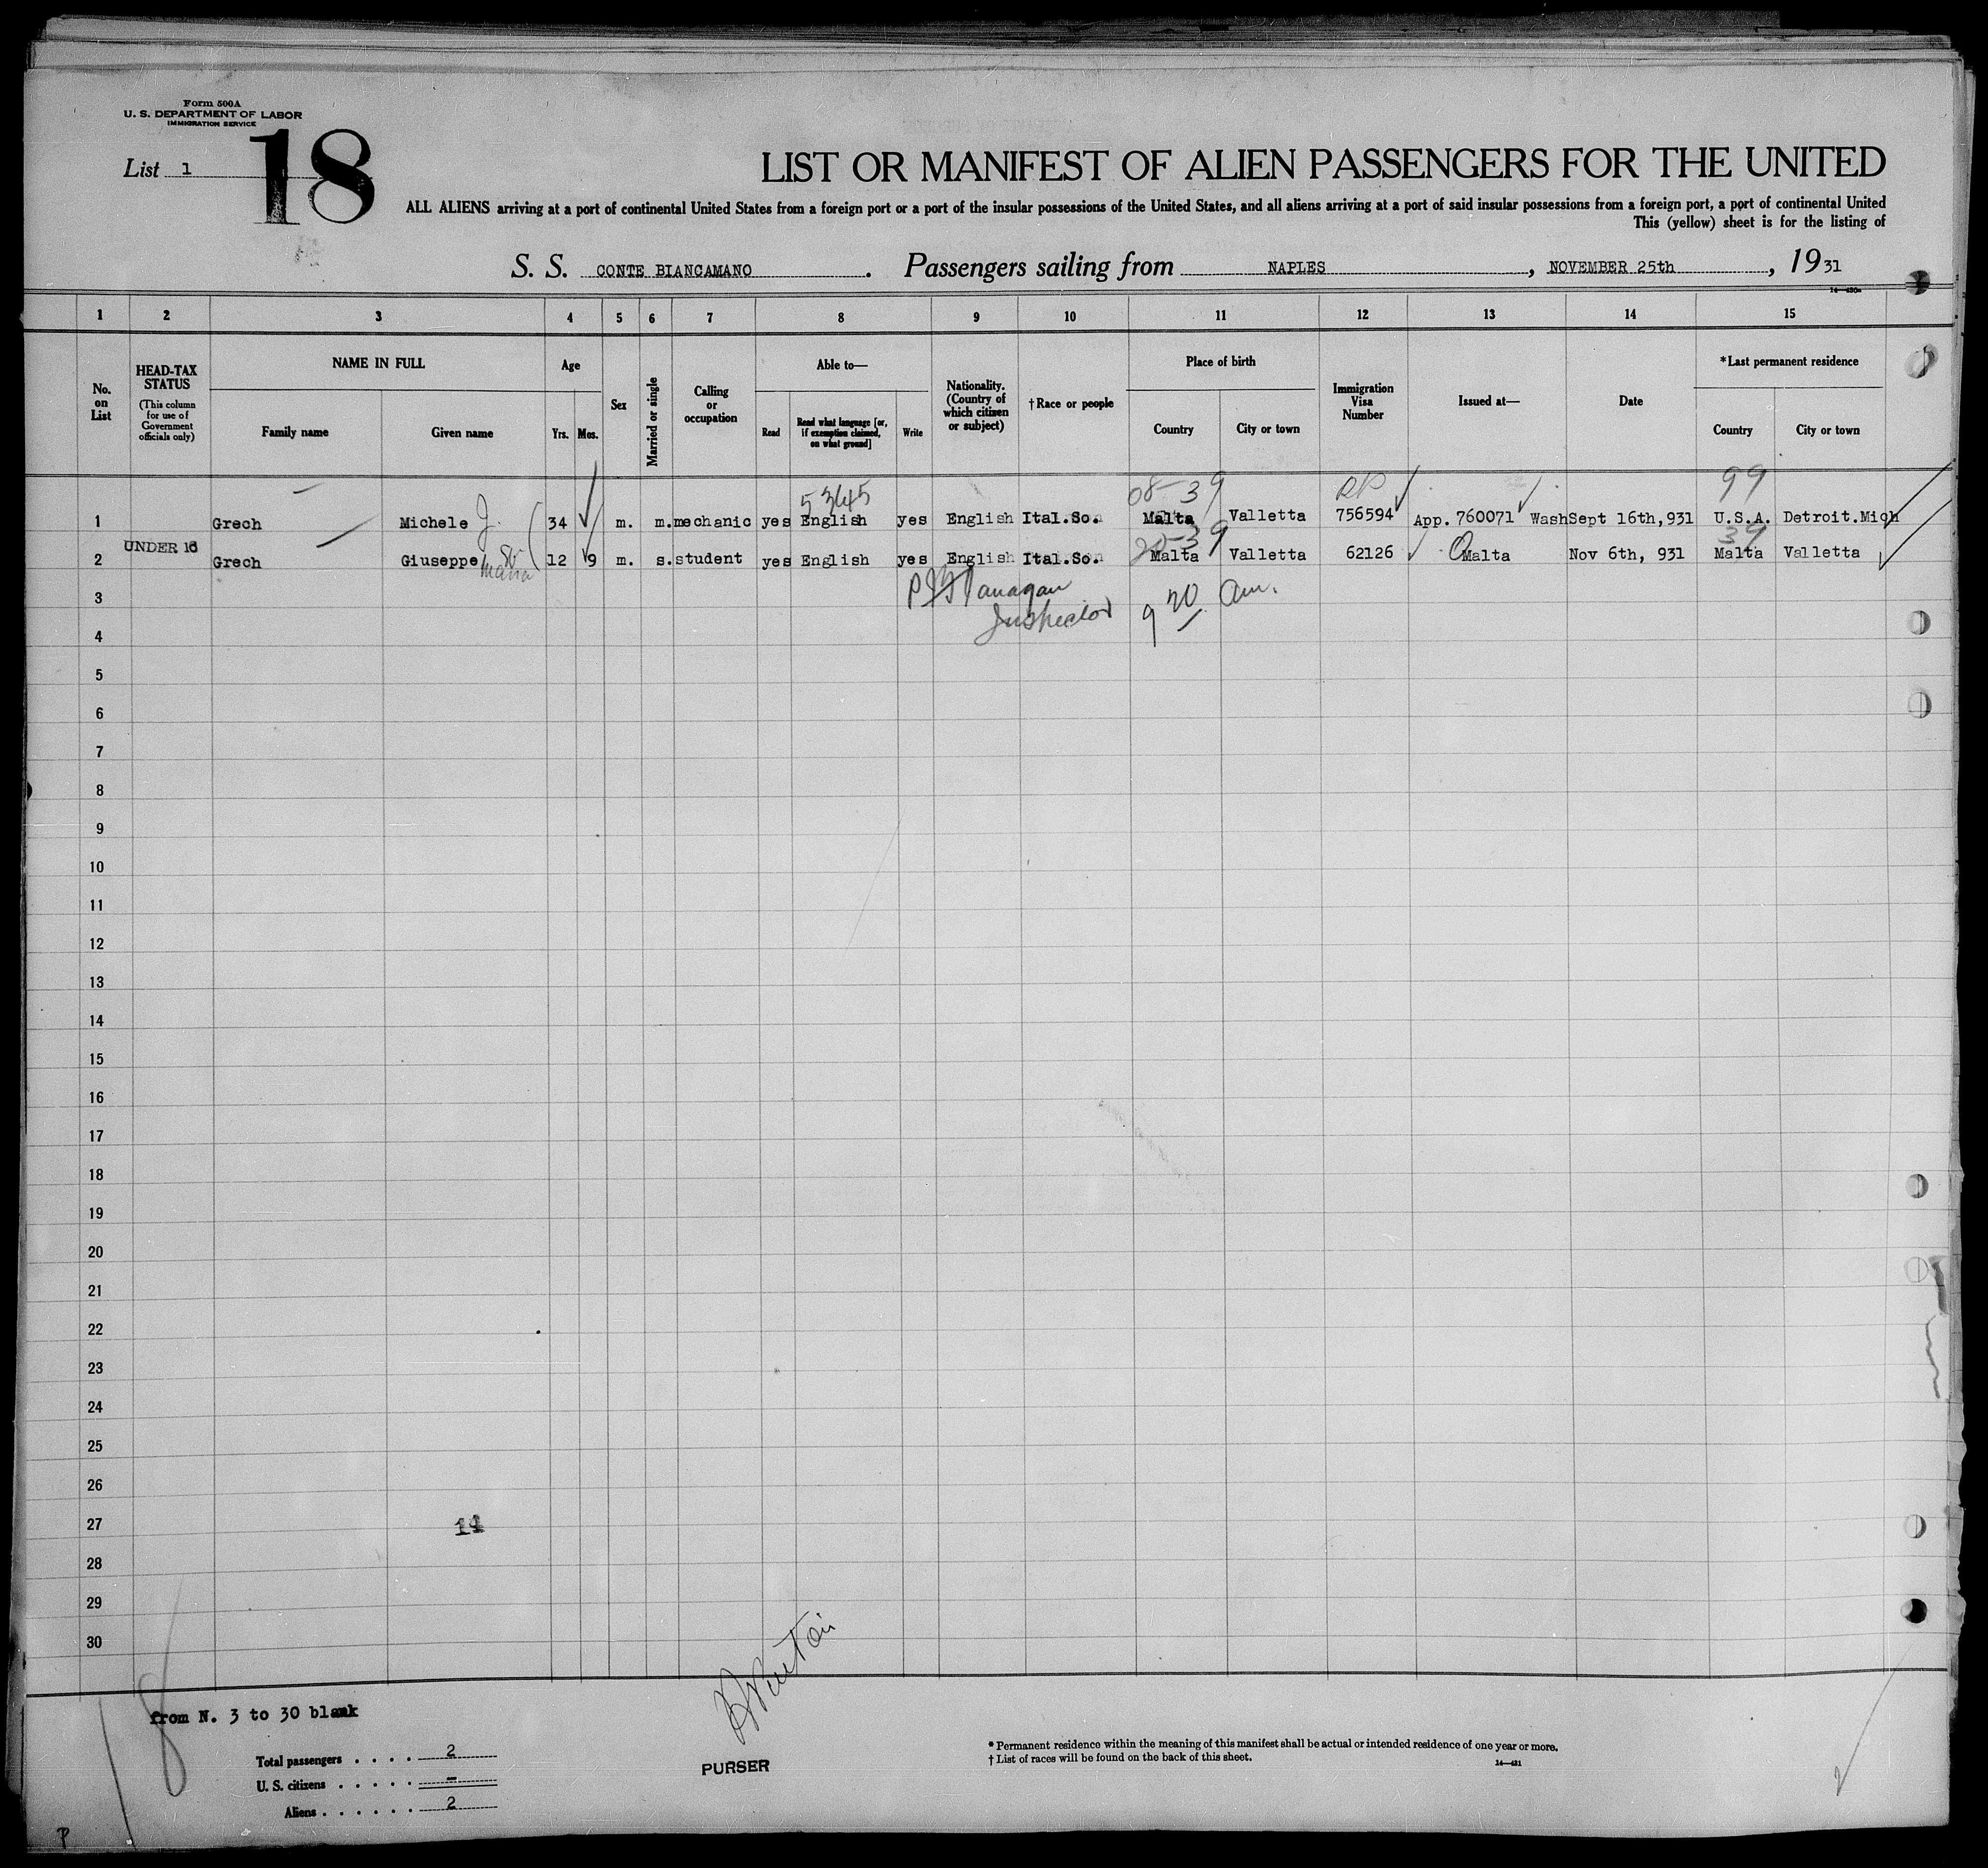 Form 500A
U. S. DEPARTMENT OF LABOR
IMMIGRATION SERVICE
List 1
18
LIST OR MANIFEST OF ALIEN PASSENGERS FOR THE UNITED
ALL ALIENS arriving at a port of continental United States from a foreign port or a port of the insular possessions of the United States, and all aliens arriving at a port of said insular possessions from a foreign port, a port of continental United
This (yellow) sheet is for the listing of
S. S. CONTE BIANCAMANO. Passengers sailing from NAPLES, NOVEMBER 25th, 1931
1 2 3 4 5 6 7 8 9 10 11 12 13 14 15
No. on List
HEAD-TAX STATUS
(This column for use of Government officials only)
NAME IN FULL
Family name
Given name
Age
Yrs. Mos.
Sex
Married or single
Calling or occupation
Able to—
Read
Read what language [or, if exemption claimed, on what ground]
Write
Nationality. (Country of which citizen or subject)
†Race or people
Place of birth
Country
City or town
Immigration Visa Number
Issued at—
Date
*Last permanent residence
Country
City or town
5345 08-39 RP 99
1 Grech Michele J. 34 m. m. mechanic yes English yes English Ital.So. Malta Valletta 756594 App. 760071 Wash Sept 16th,931 U.S.A. Detroit.Mich
UNDER 16 39
2 Grech Giuseppe Maria 12 9 m. s. student yes English yes English Ital.So. Malta Valletta 62126 Malta Nov 6th, 931 Malta Valletta
3 Flanagan
Inspector 9 20 am.
4
5
6
7
8
9
10
11
12
13
14
15
16
17
18
19
20
21
22
23
24
25
26
27 14
28
29
30
18
from N. 3 to 30 blank
Total passengers . . . . 2
U. S. citizens . . . . . –
Aliens . . . . . . 2
PURSER
* Permanent residence within the meaning of this manifest shall be actual or intended residence of one year or more.
† List of races will be found on the back of this sheet.
14—431
P